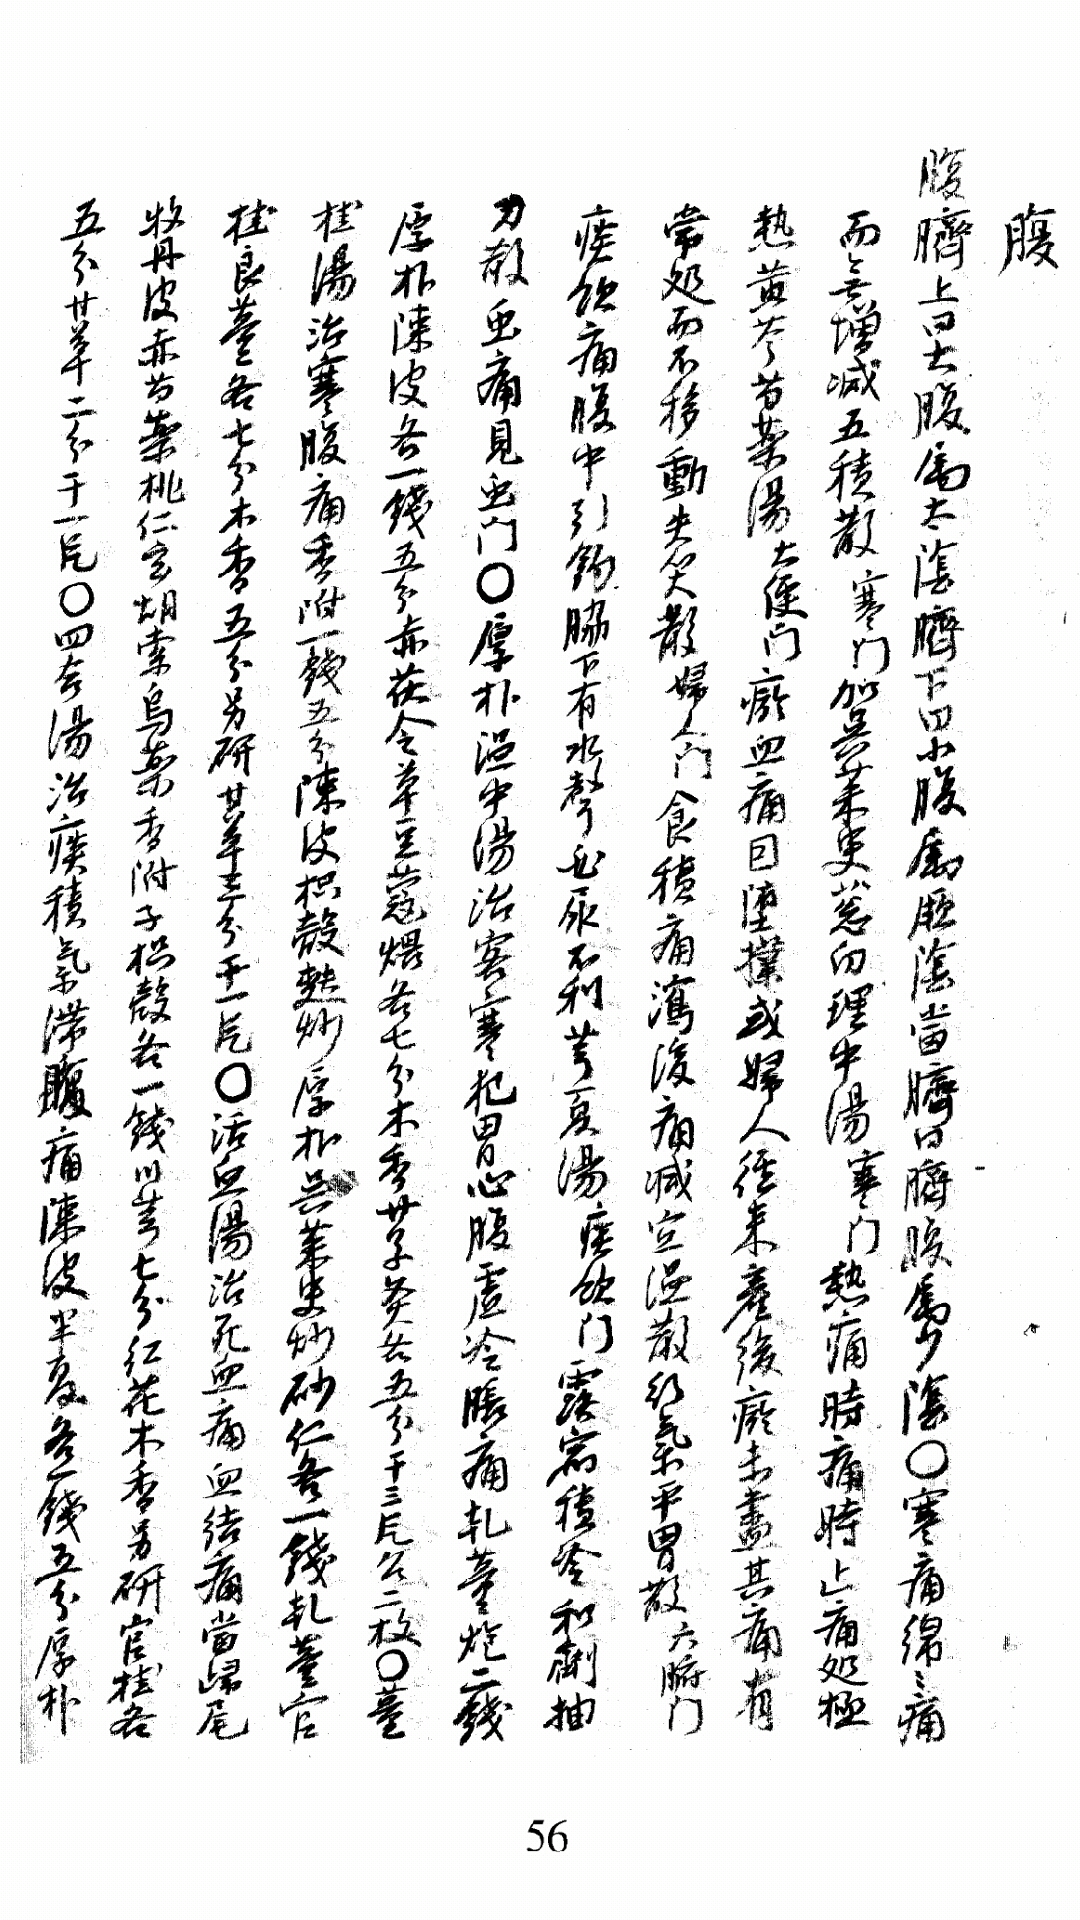 腹
腹臍上曰大腹属太陰臍下曰小腹属厥陰當臍曰臍腹属少陰〇寒痛綿〻痛
而無增减五積散寒門加吳茱萸葱白理中湯寒門熱痛時痛時止痛処極
熱黄芩芍薬湯大便門瘀血痛因墮撲或婦人經来產後瘀未盡其痛有
常処而不移動失笑散婦人門食積痛瀉後痛减宜温散行氣平胃散六腑門
痰飲痛腹中引鈎脇下有水聲必尿不利芎夏湯痰飲門露宿積冷和劑抽
刀散虫痛見虫门〇厚朴温中湯治客寒犯胃心腹虛冷脹痛乹薑炮二錢
厚朴陳皮各一錢五分赤茯令草豆蔻煨各七分木香甘草炙各五分干三片召二枚〇薑
桂湯治寒腹痛香附一錢五分陳皮枳殼麩炒厚朴吳茱萸炒砂仁各一錢乹薑官
桂良薑各七分木香五分另研甘草三分干一片〇活血湯治死血痛血结痛當歸尾
牧丹皮赤芍薬桃仁玄胡索烏薬香附子枳殼各一錢川芎七分红花木香另研官桂各
五分甘草二分干一片〇四合湯治痰積氣滞腹痛陳皮半夏各一錢五分厚朴
56